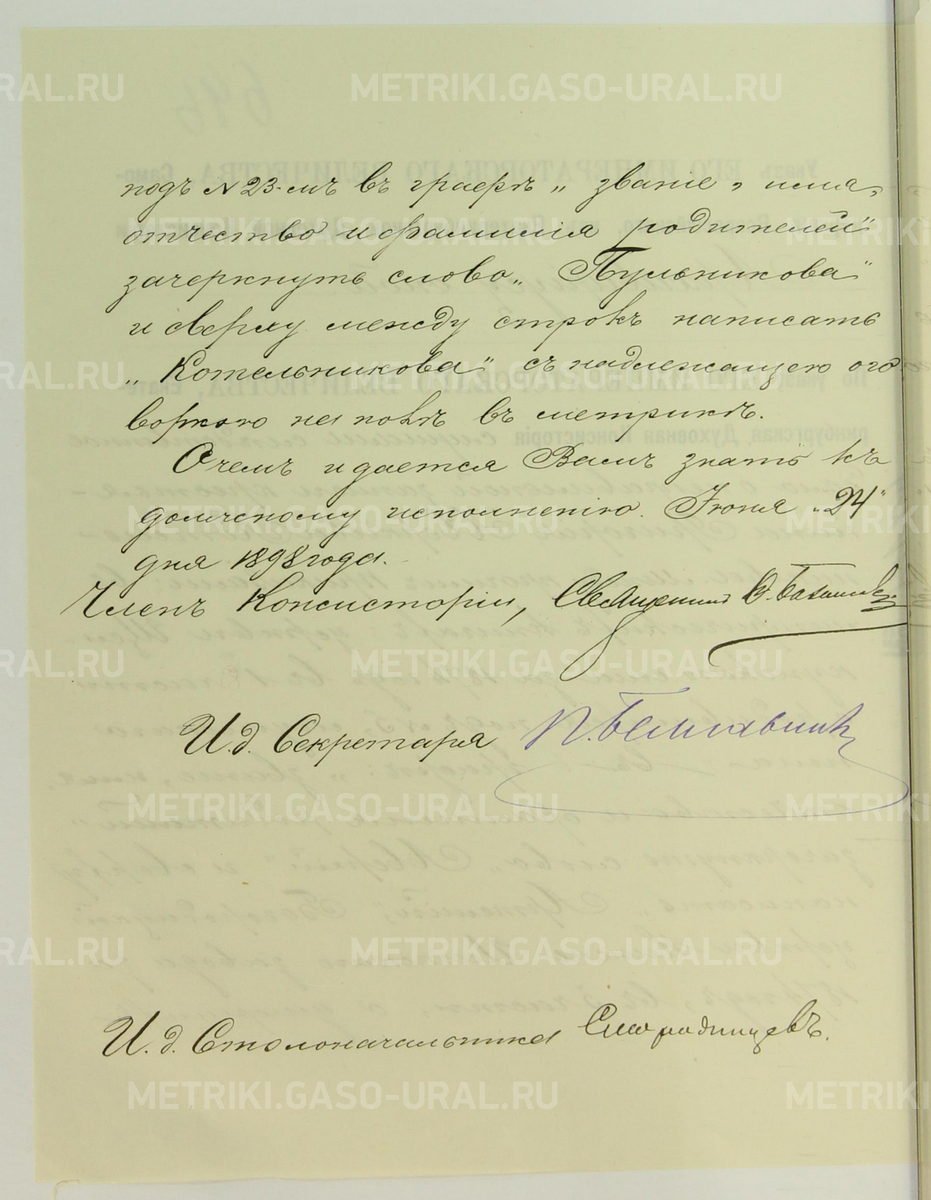 подъ N 23-мъ въ графѣ „званіе, имя,
отчество и фамилія родителей"
зачеркнуть слово „Пульникова"
и сверху между строкъ написать
„Котельникова" съ надлежащею ого
воркою на полѣ въ метрикѣ.
О чемъ и дается Вамъ знать къ
должному исполненію. Іюня „24"
дня 1898 года.
Членъ Консисторіи, Священникъ
И. д. Секретаря
И. д. Столоначальника Смородинцевъ.
METRIKI.GASO-URAL.RU